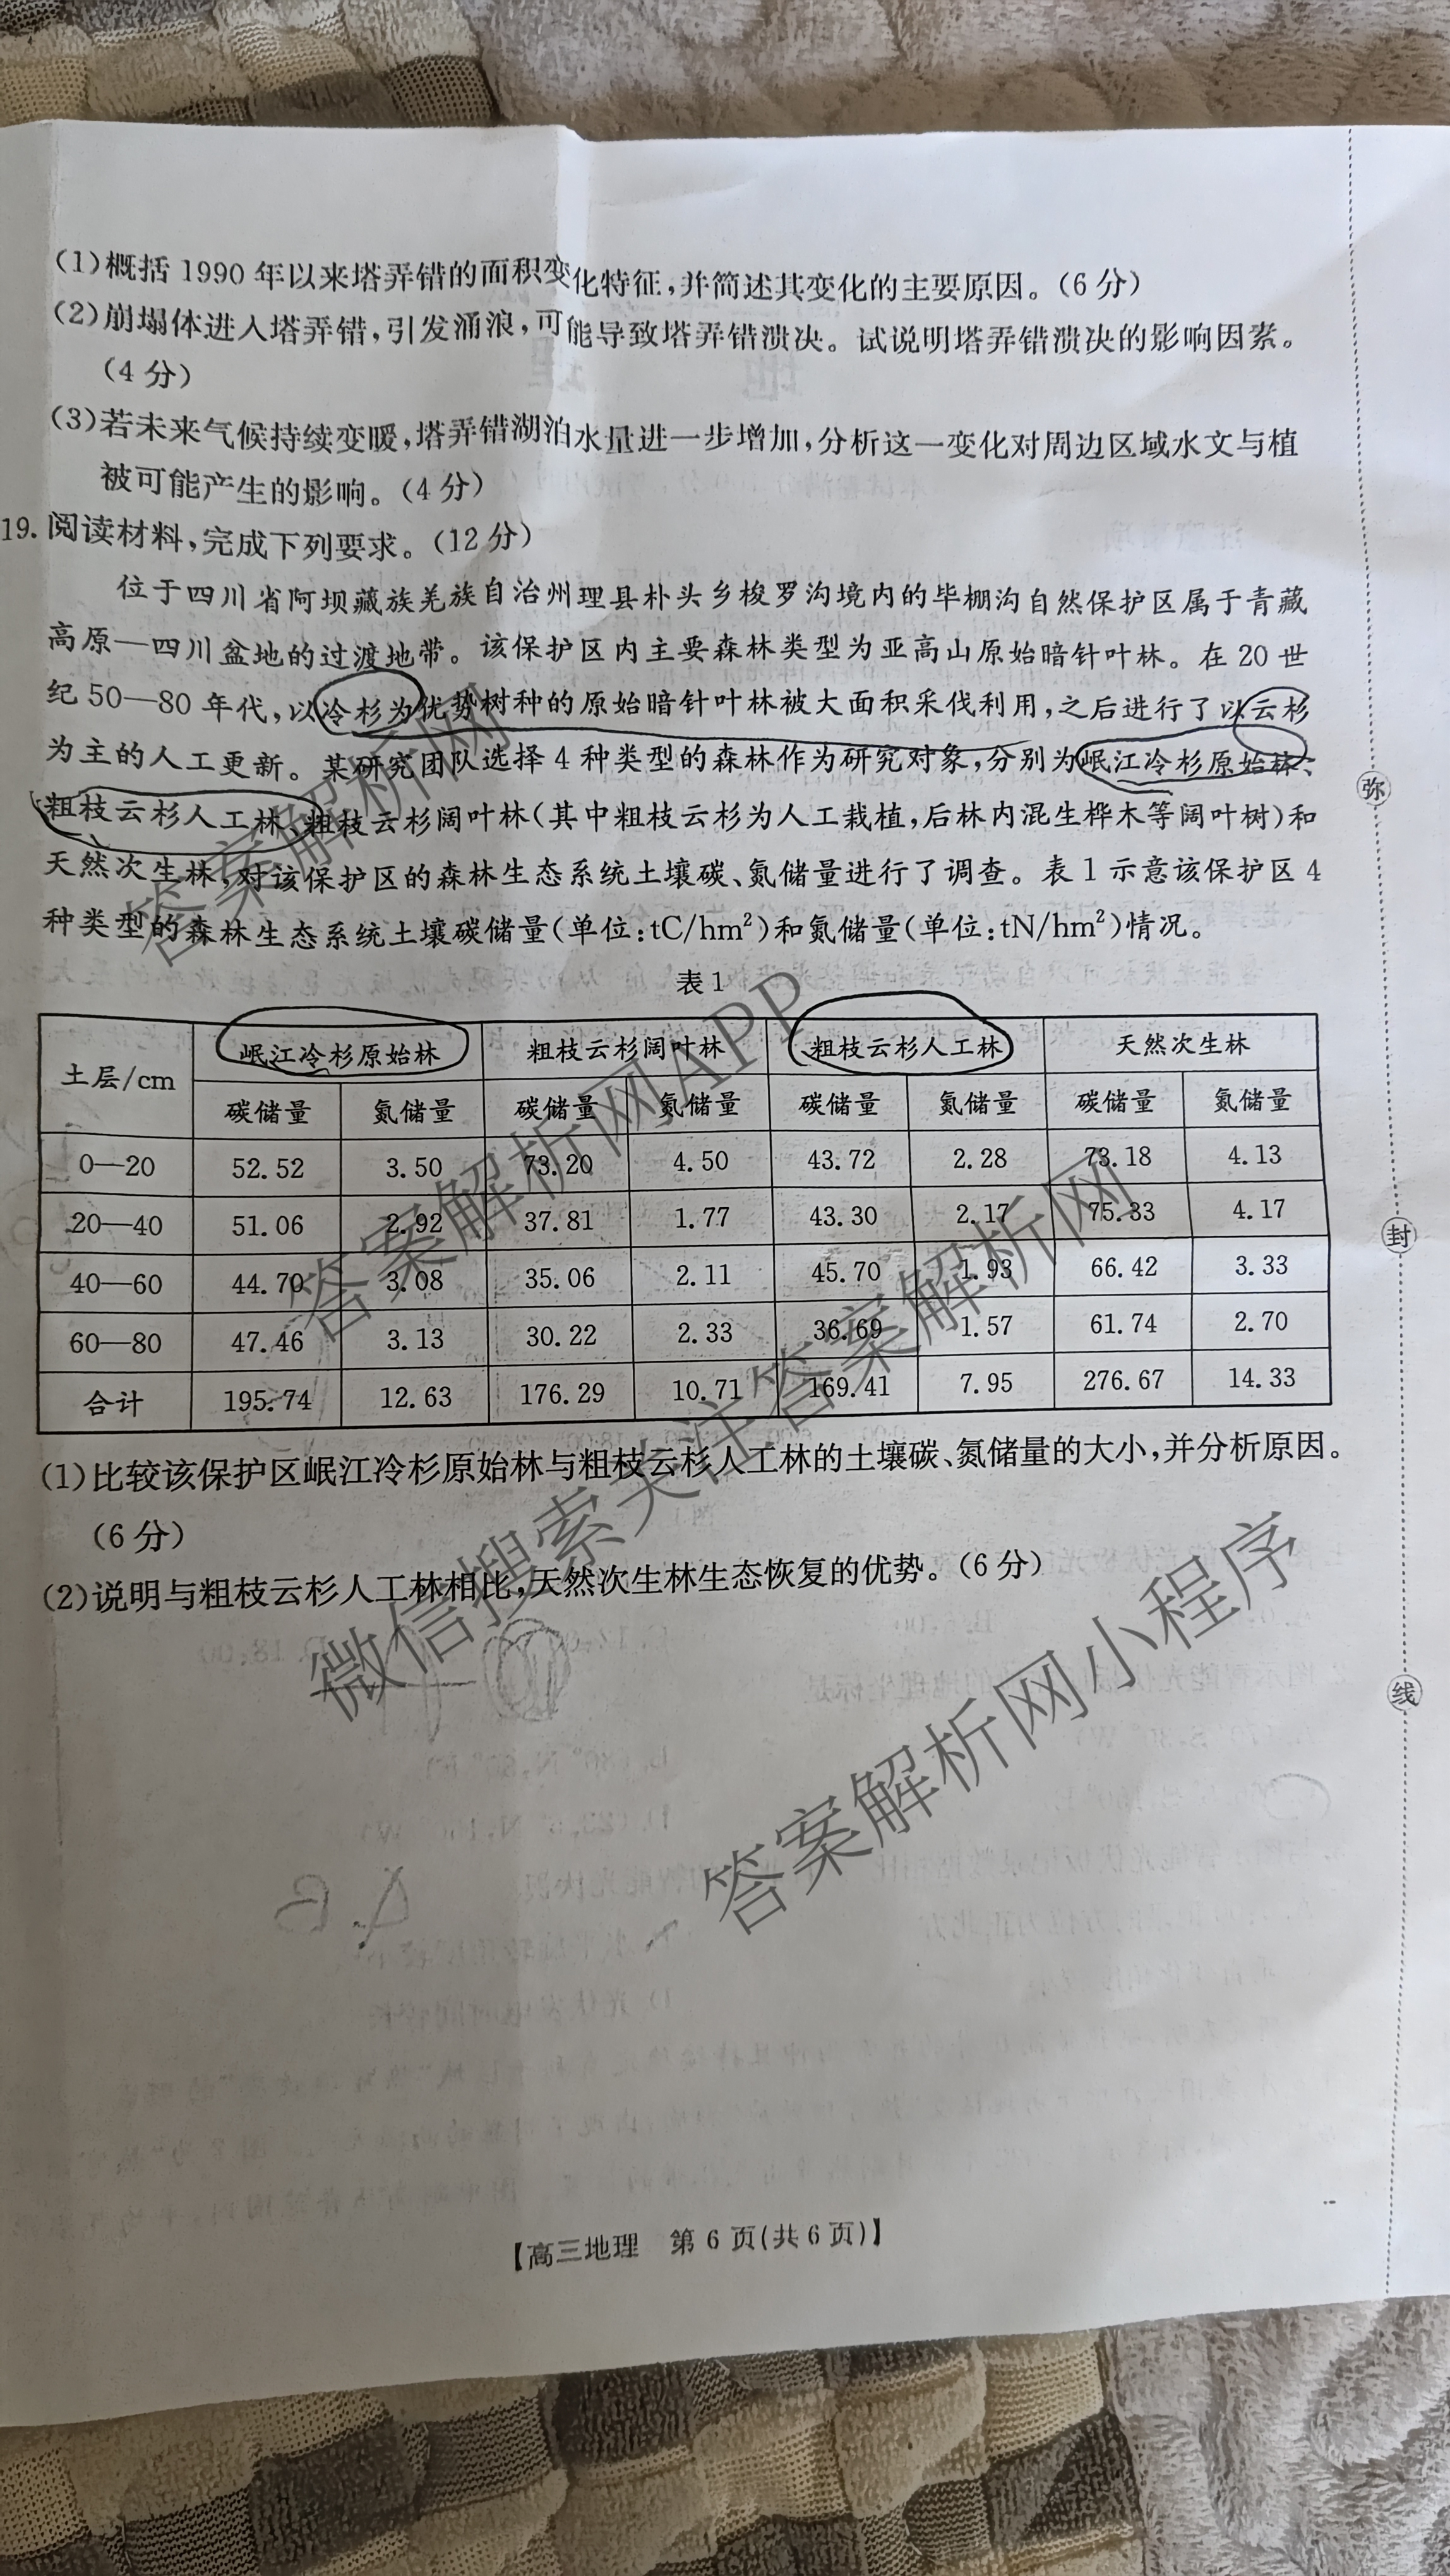 (1)概括 1990 年以来塔弄错的面积变化特征,并简述其变化的主要原因。(6 分)
(2)崩塌体进入塔弄错,引发涌浪,可能导致塔弄错溃决。试说明塔弄错溃决的影响因素。
(4 分)
(3)若未来气候持续变暖,塔弄错湖泊水量进一步增加,分析这一变化对周边区域水文与植
被可能产生的影响。(4 分)
19. 阅读材料,完成下列要求。(12 分)
位于四川省阿坝藏族羌族自治州理县朴头乡梭罗沟境内的毕棚沟自然保护区属于青藏
高原—四川盆地的过渡地带。该保护区内主要森林类型为亚高山原始暗针叶林。在 20 世
纪 50—80 年代,以冷杉为优势树种的原始暗针叶林被大面积采伐利用,之后进行了以云杉
为主的人工更新。某研究团队选择 4 种类型的森林作为研究对象,分别为岷江冷杉原始林、
粗枝云杉人工林、粗枝云杉阔叶林(其中粗枝云杉为人工栽植,后林内混生桦木等阔叶树)和
天然次生林,对该保护区的森林生态系统土壤碳、氮储量进行了调查。表 1 示意该保护区 4
种类型的森林生态系统土壤碳储量(单位:tC/hm²)和氮储量(单位:tN/hm²)情况。
表 1
土层/cm 岷江冷杉原始林 粗枝云杉阔叶林 粗枝云杉人工林 天然次生林
碳储量 氮储量 碳储量 氮储量 碳储量 氮储量 碳储量 氮储量
0—20 52.52 3.50 73.20 4.50 43.72 2.28 73.18 4.13
20—40 51.06 2.92 37.81 1.77 43.30 2.17 75.33 4.17
40—60 44.70 3.08 35.06 2.11 45.70 1.93 66.42 3.33
60—80 47.46 3.13 30.22 2.33 36.69 1.57 61.74 2.70
合计 195.74 12.63 176.29 10.71 169.41 7.95 276.67 14.33
(1)比较该保护区岷江冷杉原始林与粗枝云杉人工林的土壤碳、氮储量的大小,并分析原因。
(6 分)
(2)说明与粗枝云杉人工林相比,天然次生林生态恢复的优势。(6 分)
【高三地理 第 6 页(共 6 页)】
弥
封
线
答案解析网
答案解析网APP
微信搜索关注答案解析网
答案解析网小程序